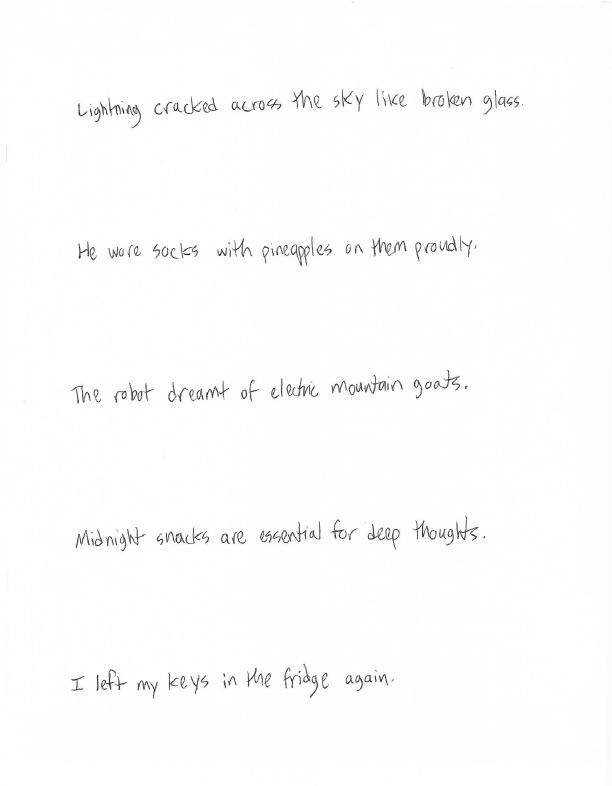 Lightning cracked across the sky like broken glass.
He wore socks with pineapples on them proudly.
The robot dreamt of electric mountain goats.
Midnight snacks are essential for deep thoughts.
I left my keys in the fridge again.